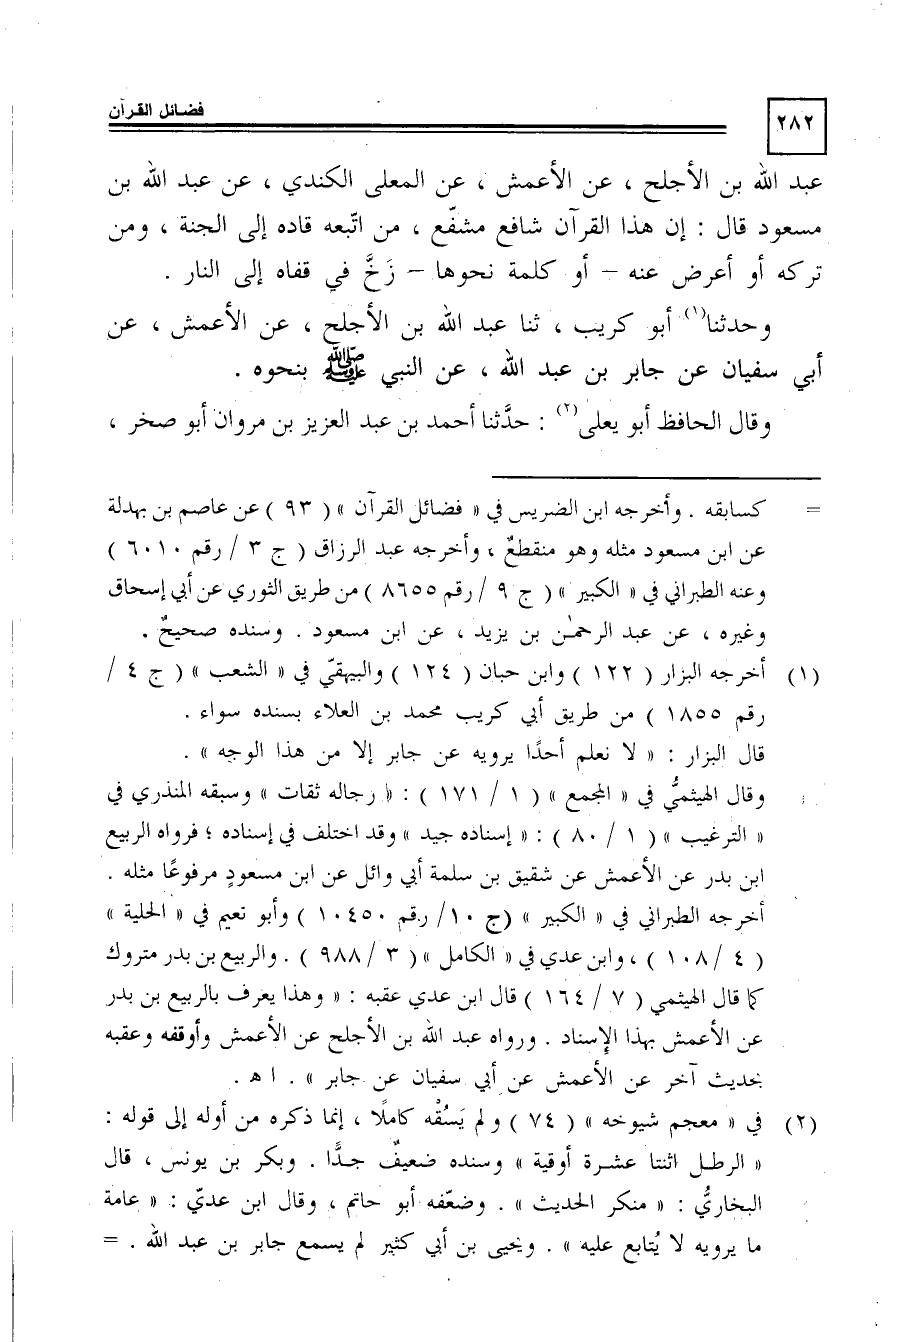 ٢٨٢
فضائل القرآن
عبد الله بن الأجلح ، عن الأعمش ، عن المعلى الكندي ، عن عبد الله بن
مسعود قال : إن هذا القرآن شافع مشفّع ، من اتّبعه قاده إلى الجنة ، ومن
تركه أو أعرض عنه – أو كلمة نحوها – زَخَّ في قفاه إلى النار .
وحدثنا(١) أبو كريب ، ثنا عبد الله بن الأجلح ، عن الأعمش ، عن
أبي سفيان عن جابر بن عبد الله ، عن النبي ﷺ بنحوه .
وقال الحافظ أبو يعلى(٢) : حدَّثنا أحمد بن عبد العزيز بن مروان أبو صخر ،
= كسابقه . وأخرجه ابن الضريس في « فضائل القرآن » ( ٩٣ ) عن عاصم بن بهدلة
عن ابن مسعود مثله وهو منقطعٌ ، وأخرجه عبد الرزاق ( ج ٣ / رقم ٦٠١٠ )
وعنه الطبراني في « الكبير » ( ج ٩ / رقم ٨٦٥٥ ) من طريق الثوري عن أبي إسحاق
وغيره ، عن عبد الرحمٰن بن يزيد ، عن ابن مسعود . وسنده صحيحٌ .
(١) أخرجه البزار ( ١٢٢ ) وابن حبان ( ١٢٤ ) والبيهقيّ في « الشعب » ( ج ٤ /
رقم ١٨٥٥ ) من طريق أبي كريب محمد بن العلاء بسنده سواء .
قال البزار : « لا نعلم أحدًا يرويه عن جابر إلا من هذا الوجه » .
وقال الهيثميُّ في « المجمع » ( ١ / ١٧١ ) : « رجاله ثقات » وسبقه المنذري في
« الترغيب » ( ١ / ٨٠ ) : « إسناده جيد » وقد اختلف في إسناده ؛ فرواه الربيع
ابن بدر عن الأعمش عن شقيق بن سلمة أبي وائل عن ابن مسعودٍ مرفوعًا مثله .
أخرجه الطبراني في « الكبير » (ج ١٠/ رقم ١٠٤٥٠ ) وأبو نعيم في « الحلية »
( ٤ /١٠٨ ) ، وابن عدي في « الكامل » ( ٣ / ٩٨٨ ) . والربيع بن بدر متروك
كما قال الهيثمي ( ٧ / ١٦٤ ) قال ابن عدي عقبه : « وهذا يعرف بالربيع بن بدر
عن الأعمش بهذا الإسناد . ورواه عبد الله بن الأجلح عن الأعمش وأوقفه وعقبه
بحديث آخر عن الأعمش عن أبي سفيان عن جابر » . ا هـ .
(٢) في « معجم شيوخه » ( ٧٤ ) ولم يَسُقْه كاملًا ، إنما ذكره من أوله إلى قوله :
« الرطل اثنتا عشرة أوقية » وسنده ضعيفٌ جدًّا . وبكر بن يونس ، قال
البخاريُّ : « منكر الحديث » . وضعّفه أبو حاتم ، وقال ابن عديّ : « عامة
ما يرويه لا يُتابع عليه » . ويحيى بن أبي كثير لم يسمع جابر بن عبد الله . =